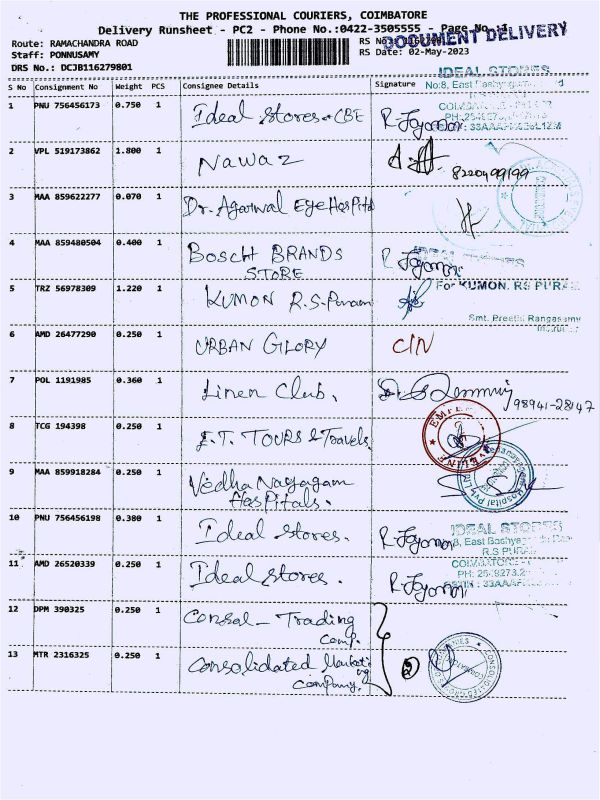 THE PROFESSIONAL COURIERS, COIMBATORE
Delivery Runsheet - PC2 - Phone No.:0422-3505555 - Page No.:1
DOCUMENT DELIVERY
Route: RAMACHANDRA ROAD
Staff: PONNUSAMY
RS Date: 02-May-2023
DRS No.: DCJB116279801
S No Consignment No Weight PCS Consignee Details Signature
IDEAL STORES
1 PNU 756456173 0.750 1 Ideal Stores - CBE R. Jayamani
2 VPL 519173862 1.800 1 Nawaz 8220499199
3 MAA 859622277 0.070 1 Dr. Agarwal Eye Hospital
4 MAA 859480504 0.400 1 BOSCH BRANDS
STORE R Jayamani
IDEAL STORES
5 TRZ 56978309 1.220 1 KUMON R.S. Puram
For KUMON, RS PURAM
Smt. Preethi Rangasamy
6 AMD 26477290 0.250 1 URBAN GLORY CIN
7 POL 1191985 0.360 1 Linen Club. 98941-28147
8 TCG 194398 0.250 1 TOURS & Travels.
9 MAA 859918284 0.250 1 Vedha Nayagam
Hospitals.
10 PNU 756456198 0.380 1 Ideal Stores. R. Jayamani
IDEAL STORES
R.S PURAM
11 AMD 26520339 0.250 1 Ideal Stores. R Jayamani
12 DPM 390325 0.250 1 Consol - Trading
Comp.
13 MTR 2316325 0.250 1 Consolidated Marketing
Company. 2